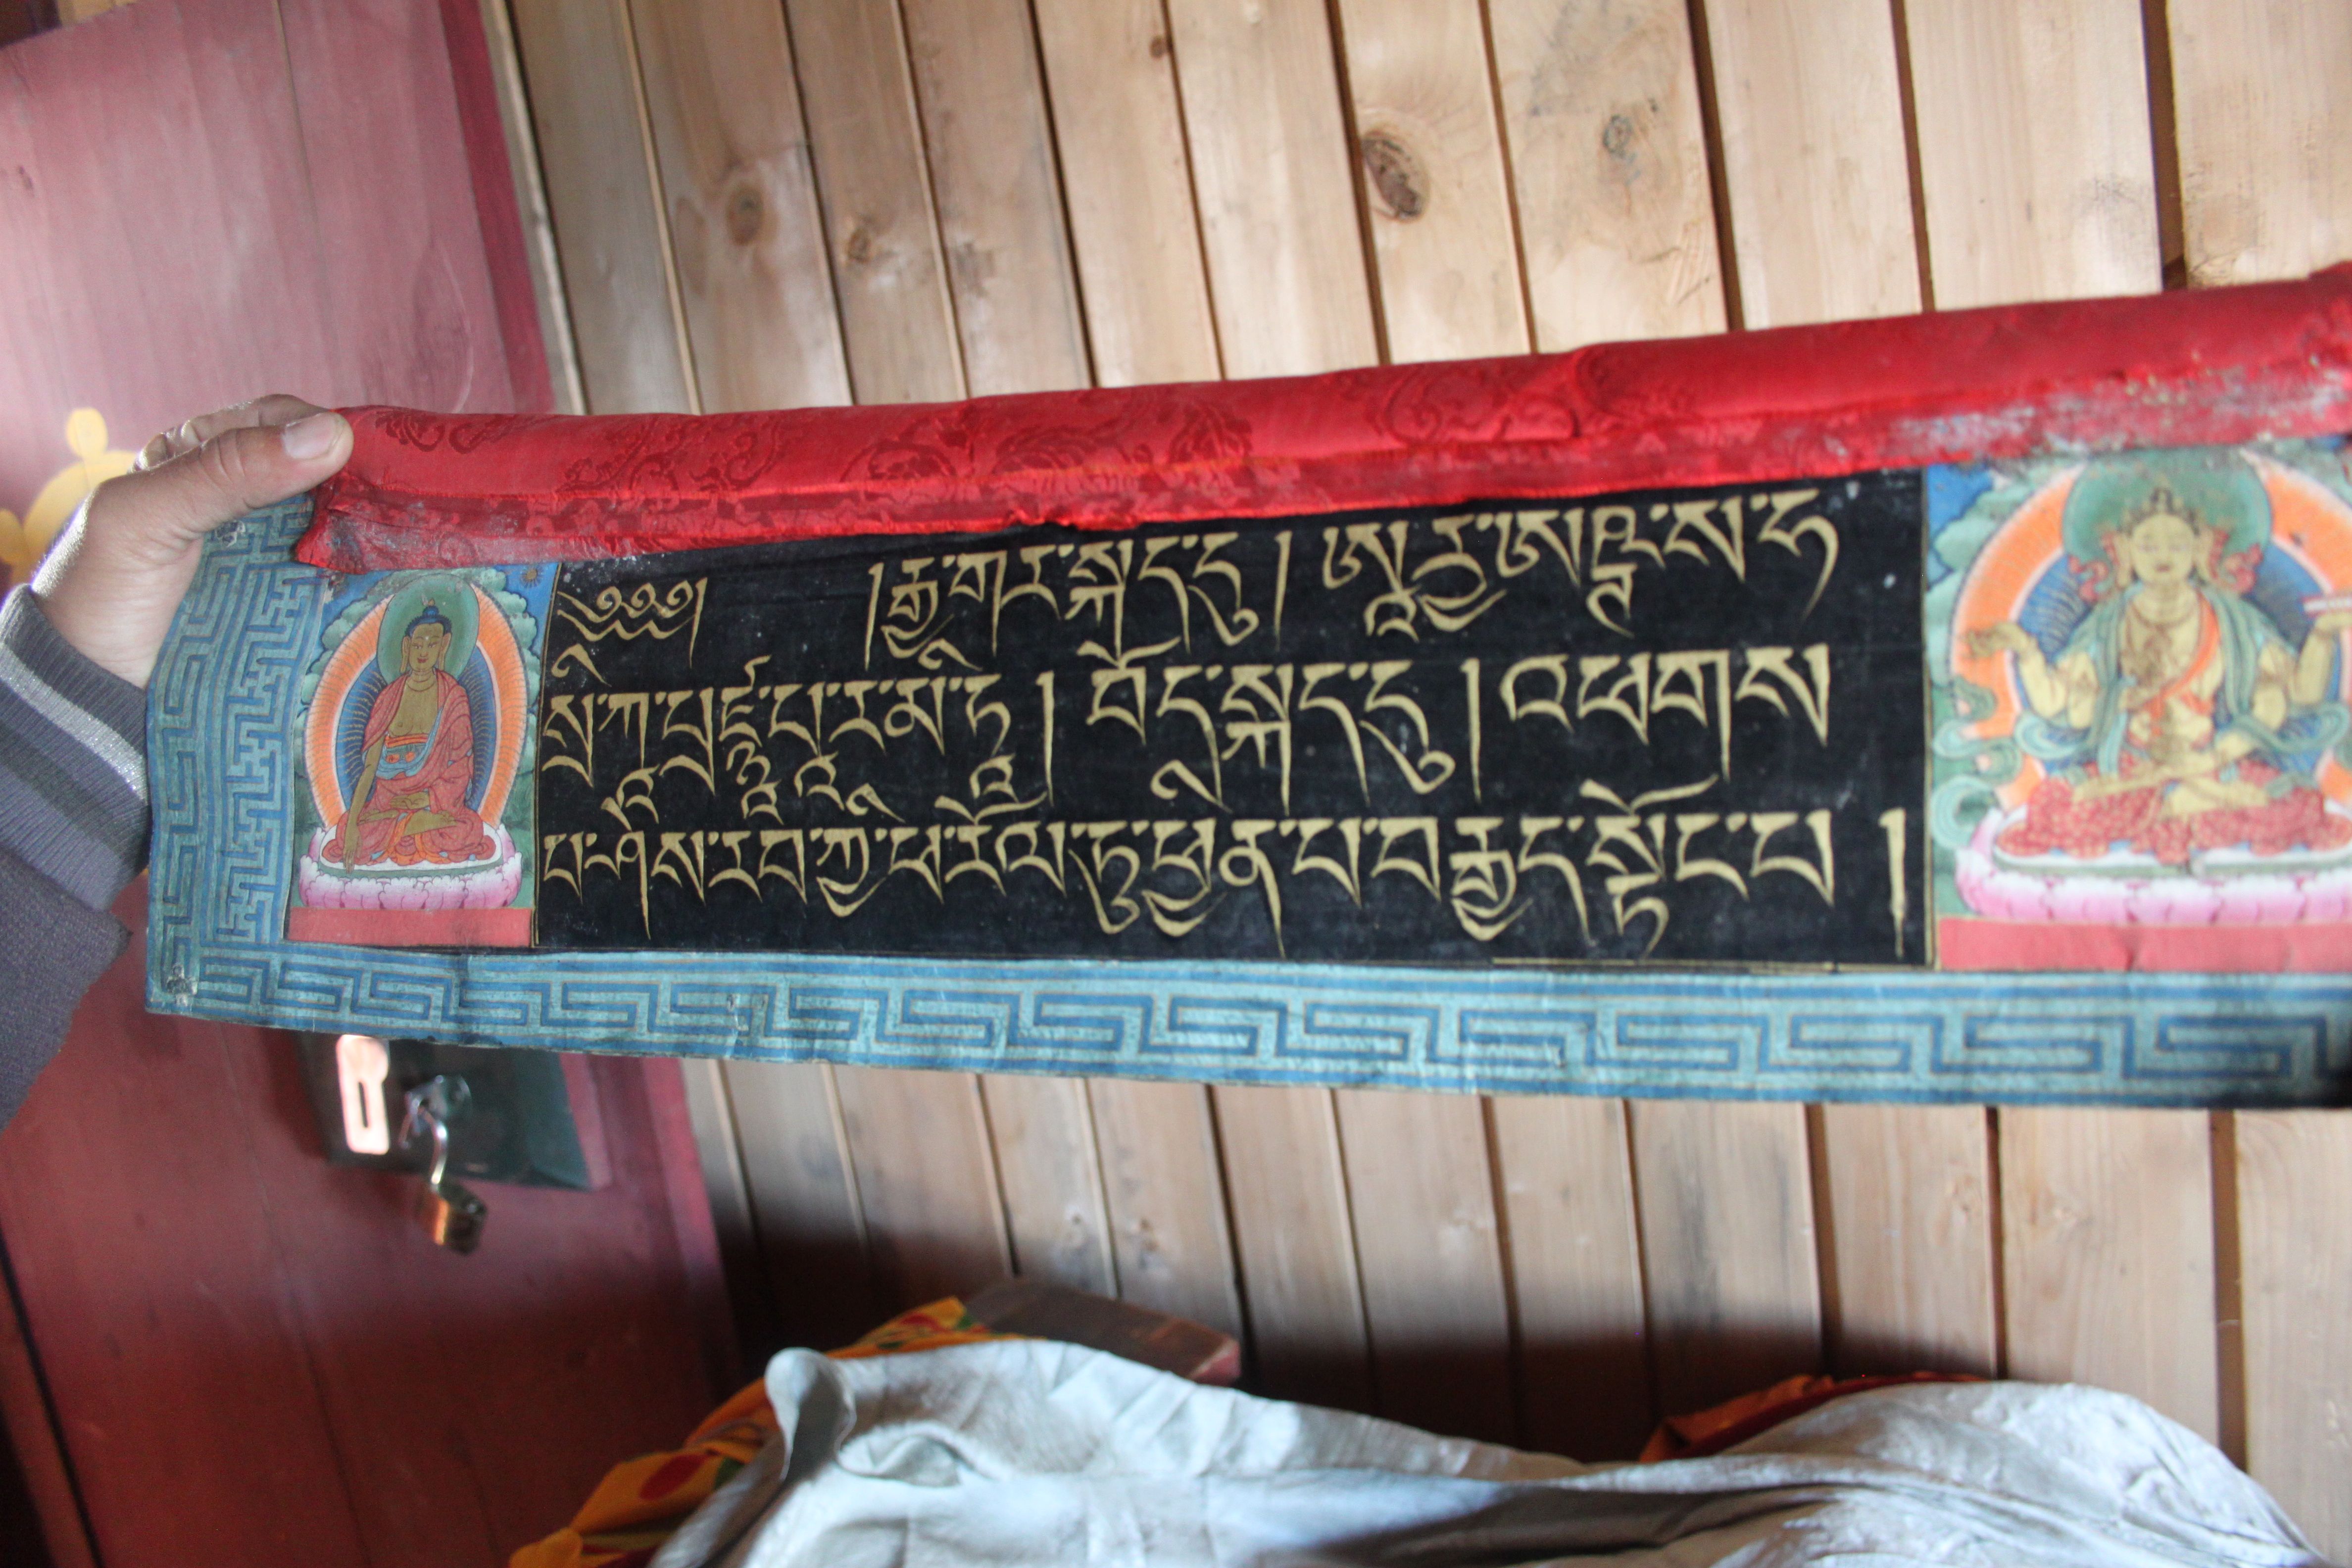 ༄༅༅། །རྒྱ་གར་སྐད་དུ། ཨཱརྱ་ཨཥྚ་ས་ཧ
སྲི་ཀཱ་པྲཛྙཱ་པཱ་ར་མི་ཏཱ། བོད་སྐད་དུ། འཕགས
པ་ཤེས་རབ་ཀྱི་ཕ་རོལ་ཏུ་ཕྱིན་པ་བརྒྱད་སྟོང་པ།